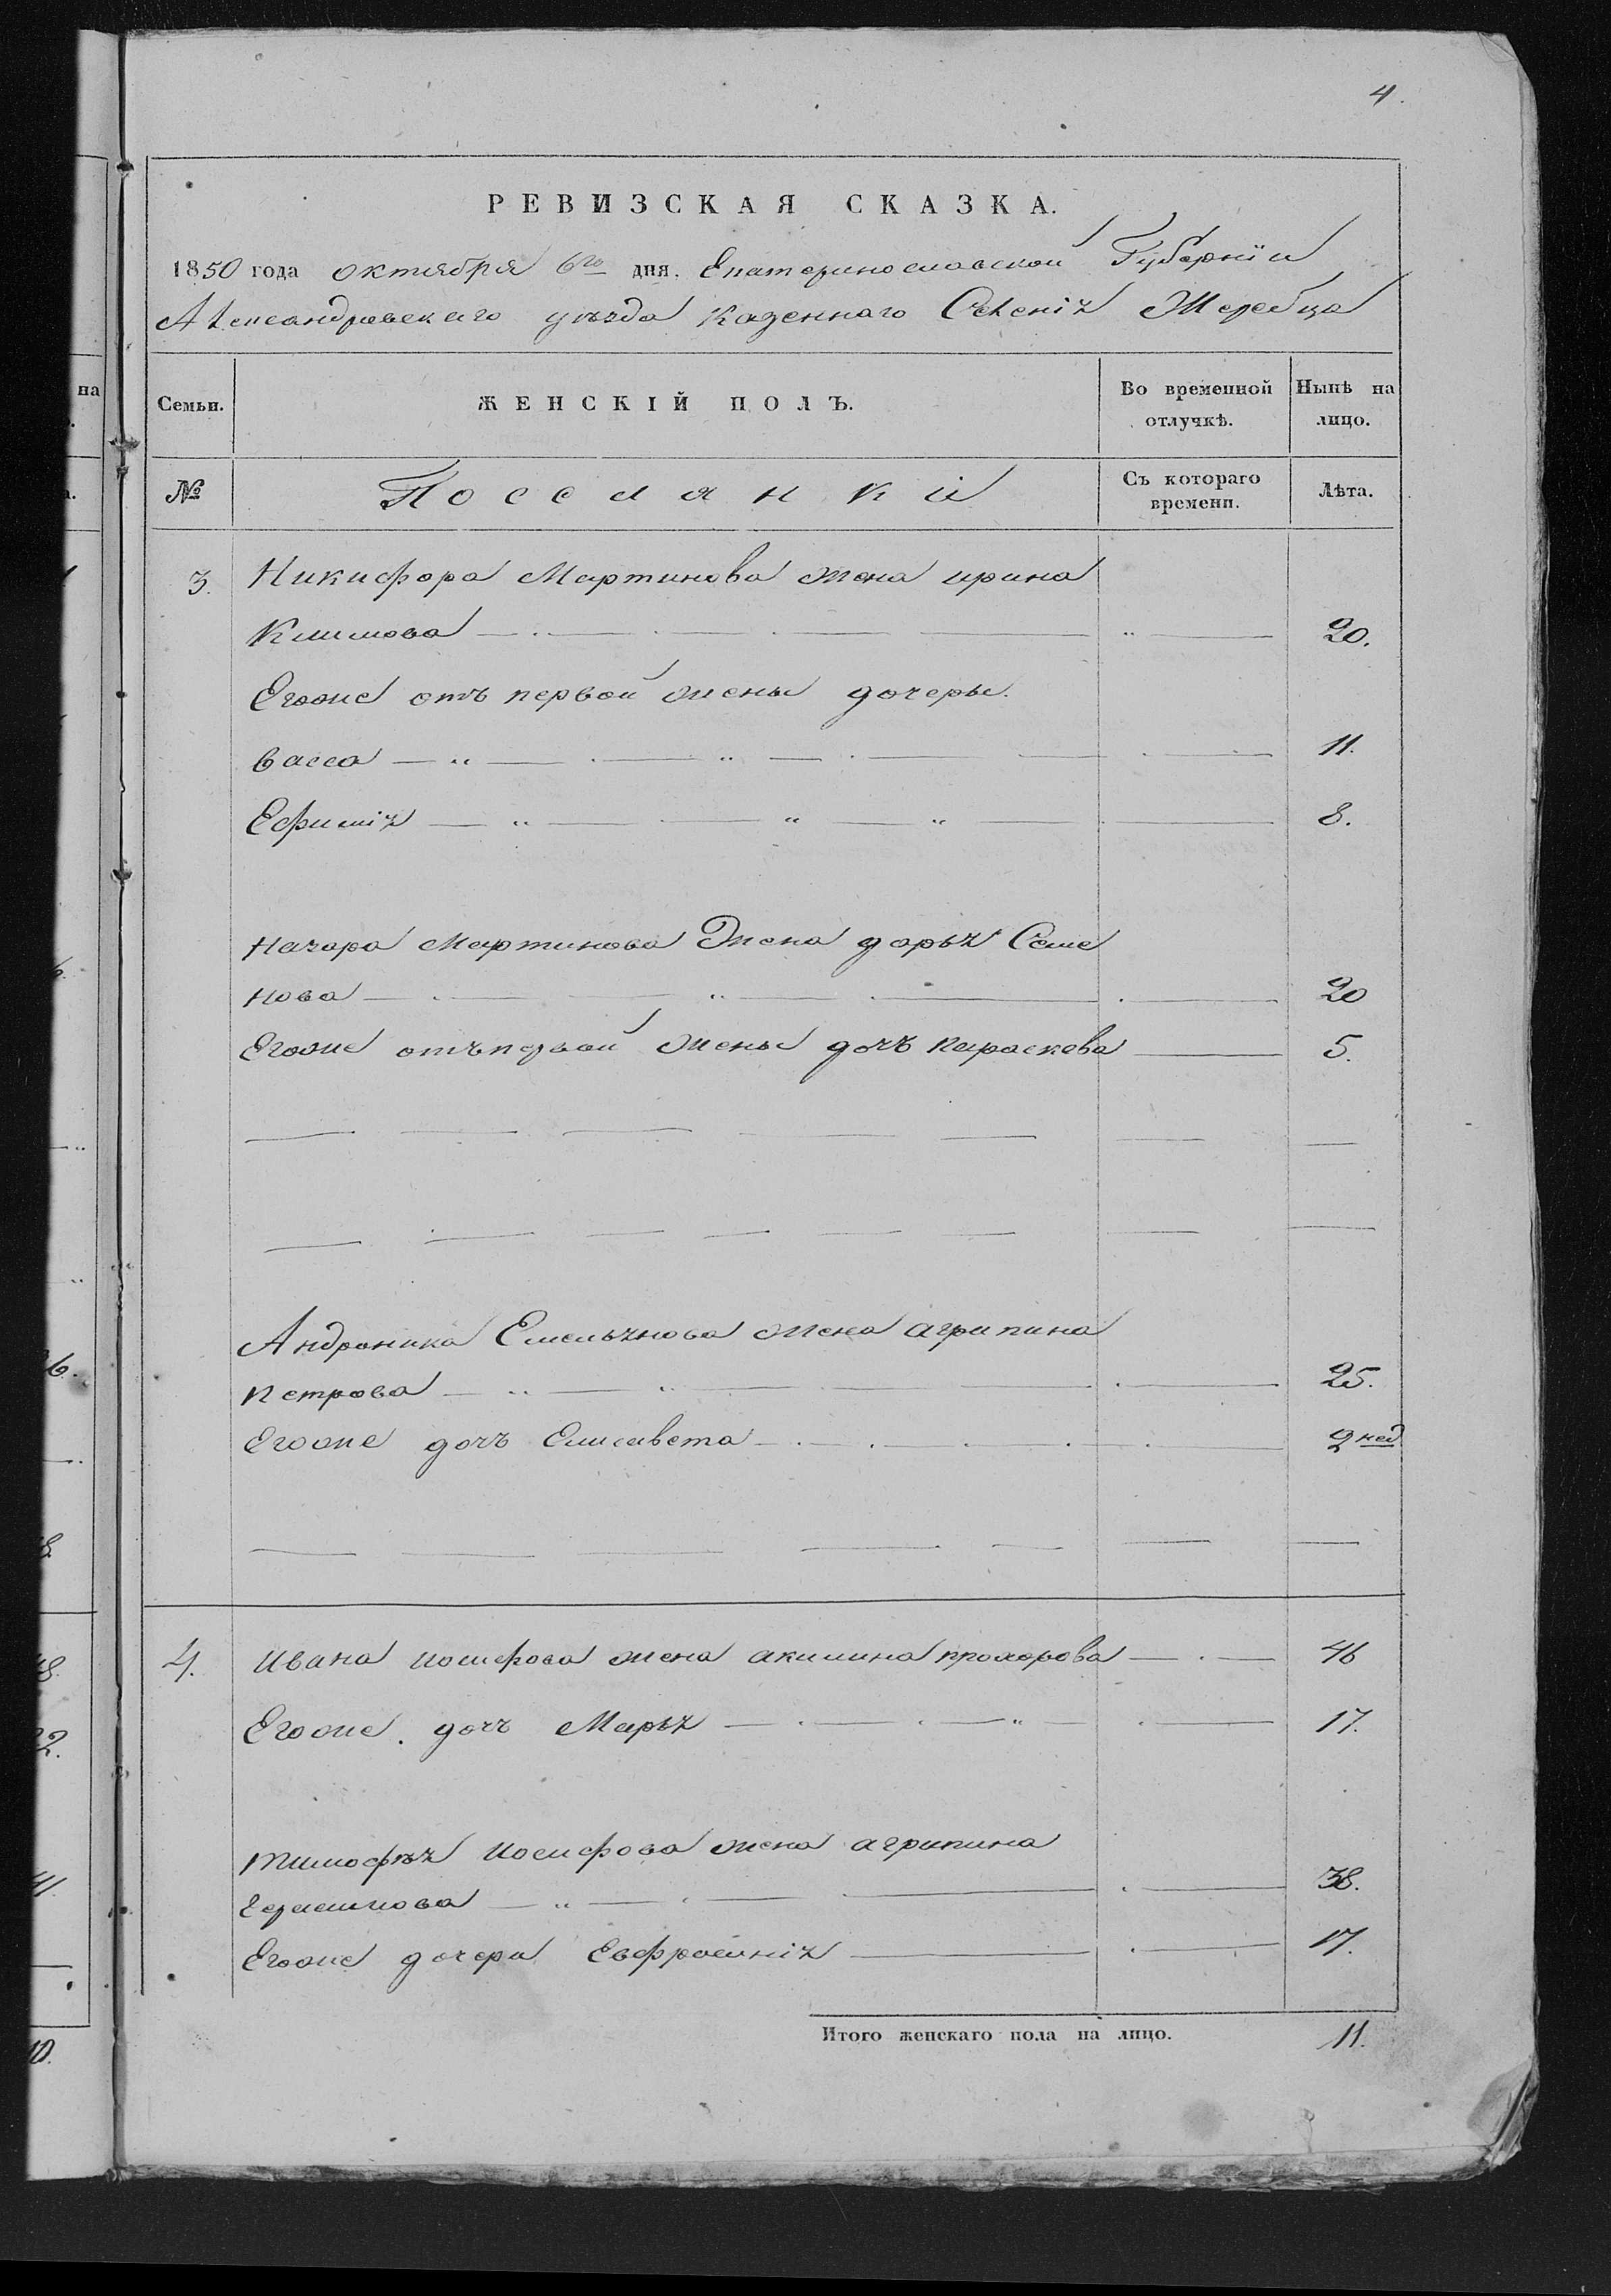 4.
РЕВИЗСКАЯ СКАЗКА.
1850 года октября 6го дня. Екатеринославской Губерніи
Александровскаго уѣзда казеннаго Селенія Жеребца
Семьи. ЖЕНСКІЙ ПОЛЪ. Во временной отлучкѣ. Нынѣ на лицо.
№ Поселянкі Съ котораго времени. Лѣта.
3. Никифора Мартинова жена ирина
Климова 20.
Егоже отъ первой жены дочеры.
васса 11.
Ефимія 8.
Назара Мартинова Жена дарья Семе
нова 20
Егоже отъ первой жены дочъ параскева 5.
Андроника Емельянова жена агрипина
петрова 25.
Егоже дочъ Елисавета 2 нед
4. Ивана иосифова жена акилина прохорова 46
Егоже. дочъ Марья 17.
тимофѣя Иосифова жена агрипина
Герасимова 38.
Егоже дочера Евфросинія 17.
Итого женскаго пола на лицо. 11.
на